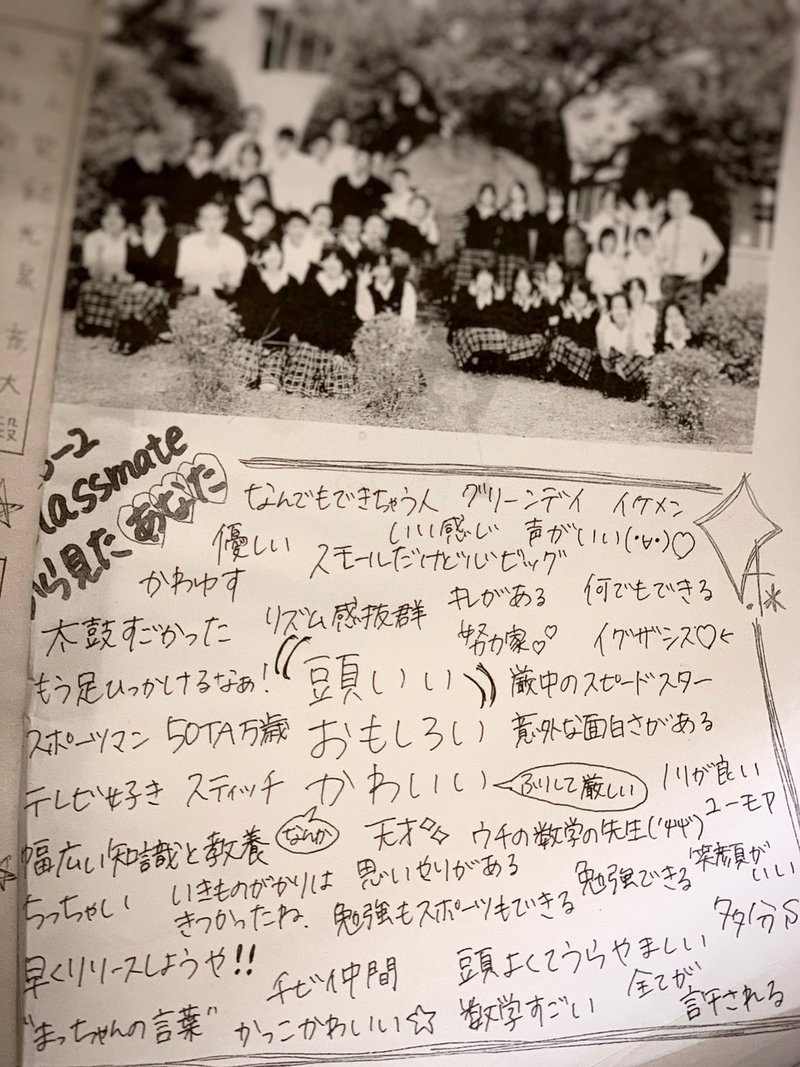 -2
lassmate
から見たあなた
なんでもできちゃう人 グリーンデイ イケメン
優しい いい感じ 声がいい(・∀・)♡
かわゆす スモールだけど心ビッグ
太鼓すごかった リズム感抜群 キレがある 何でもできる
努力家♡♡ イグザシズ♡
もう足ひっかけるなぁ! 頭いい 厳中のスピードスター
スポーツマン SOTA万歳 おもしろい 意外な面白さがある
テレビ好き スティッチ かわいい ふりして厳しい ノリが良い
幅広い知識と教養 なんか 天才 ウチの数学の先生 ユーモア
ちっちゃい いきものがかりは 思いやりがある 勉強できる 笑顔が
きつかったね. 勉強もスポーツもできる いい
早くリリースしようや!! チビ仲間 頭よくてうらやましい 多分S
"まっちゃんの言葉" かっこかわいい☆ 数学すごい 全てが
許される